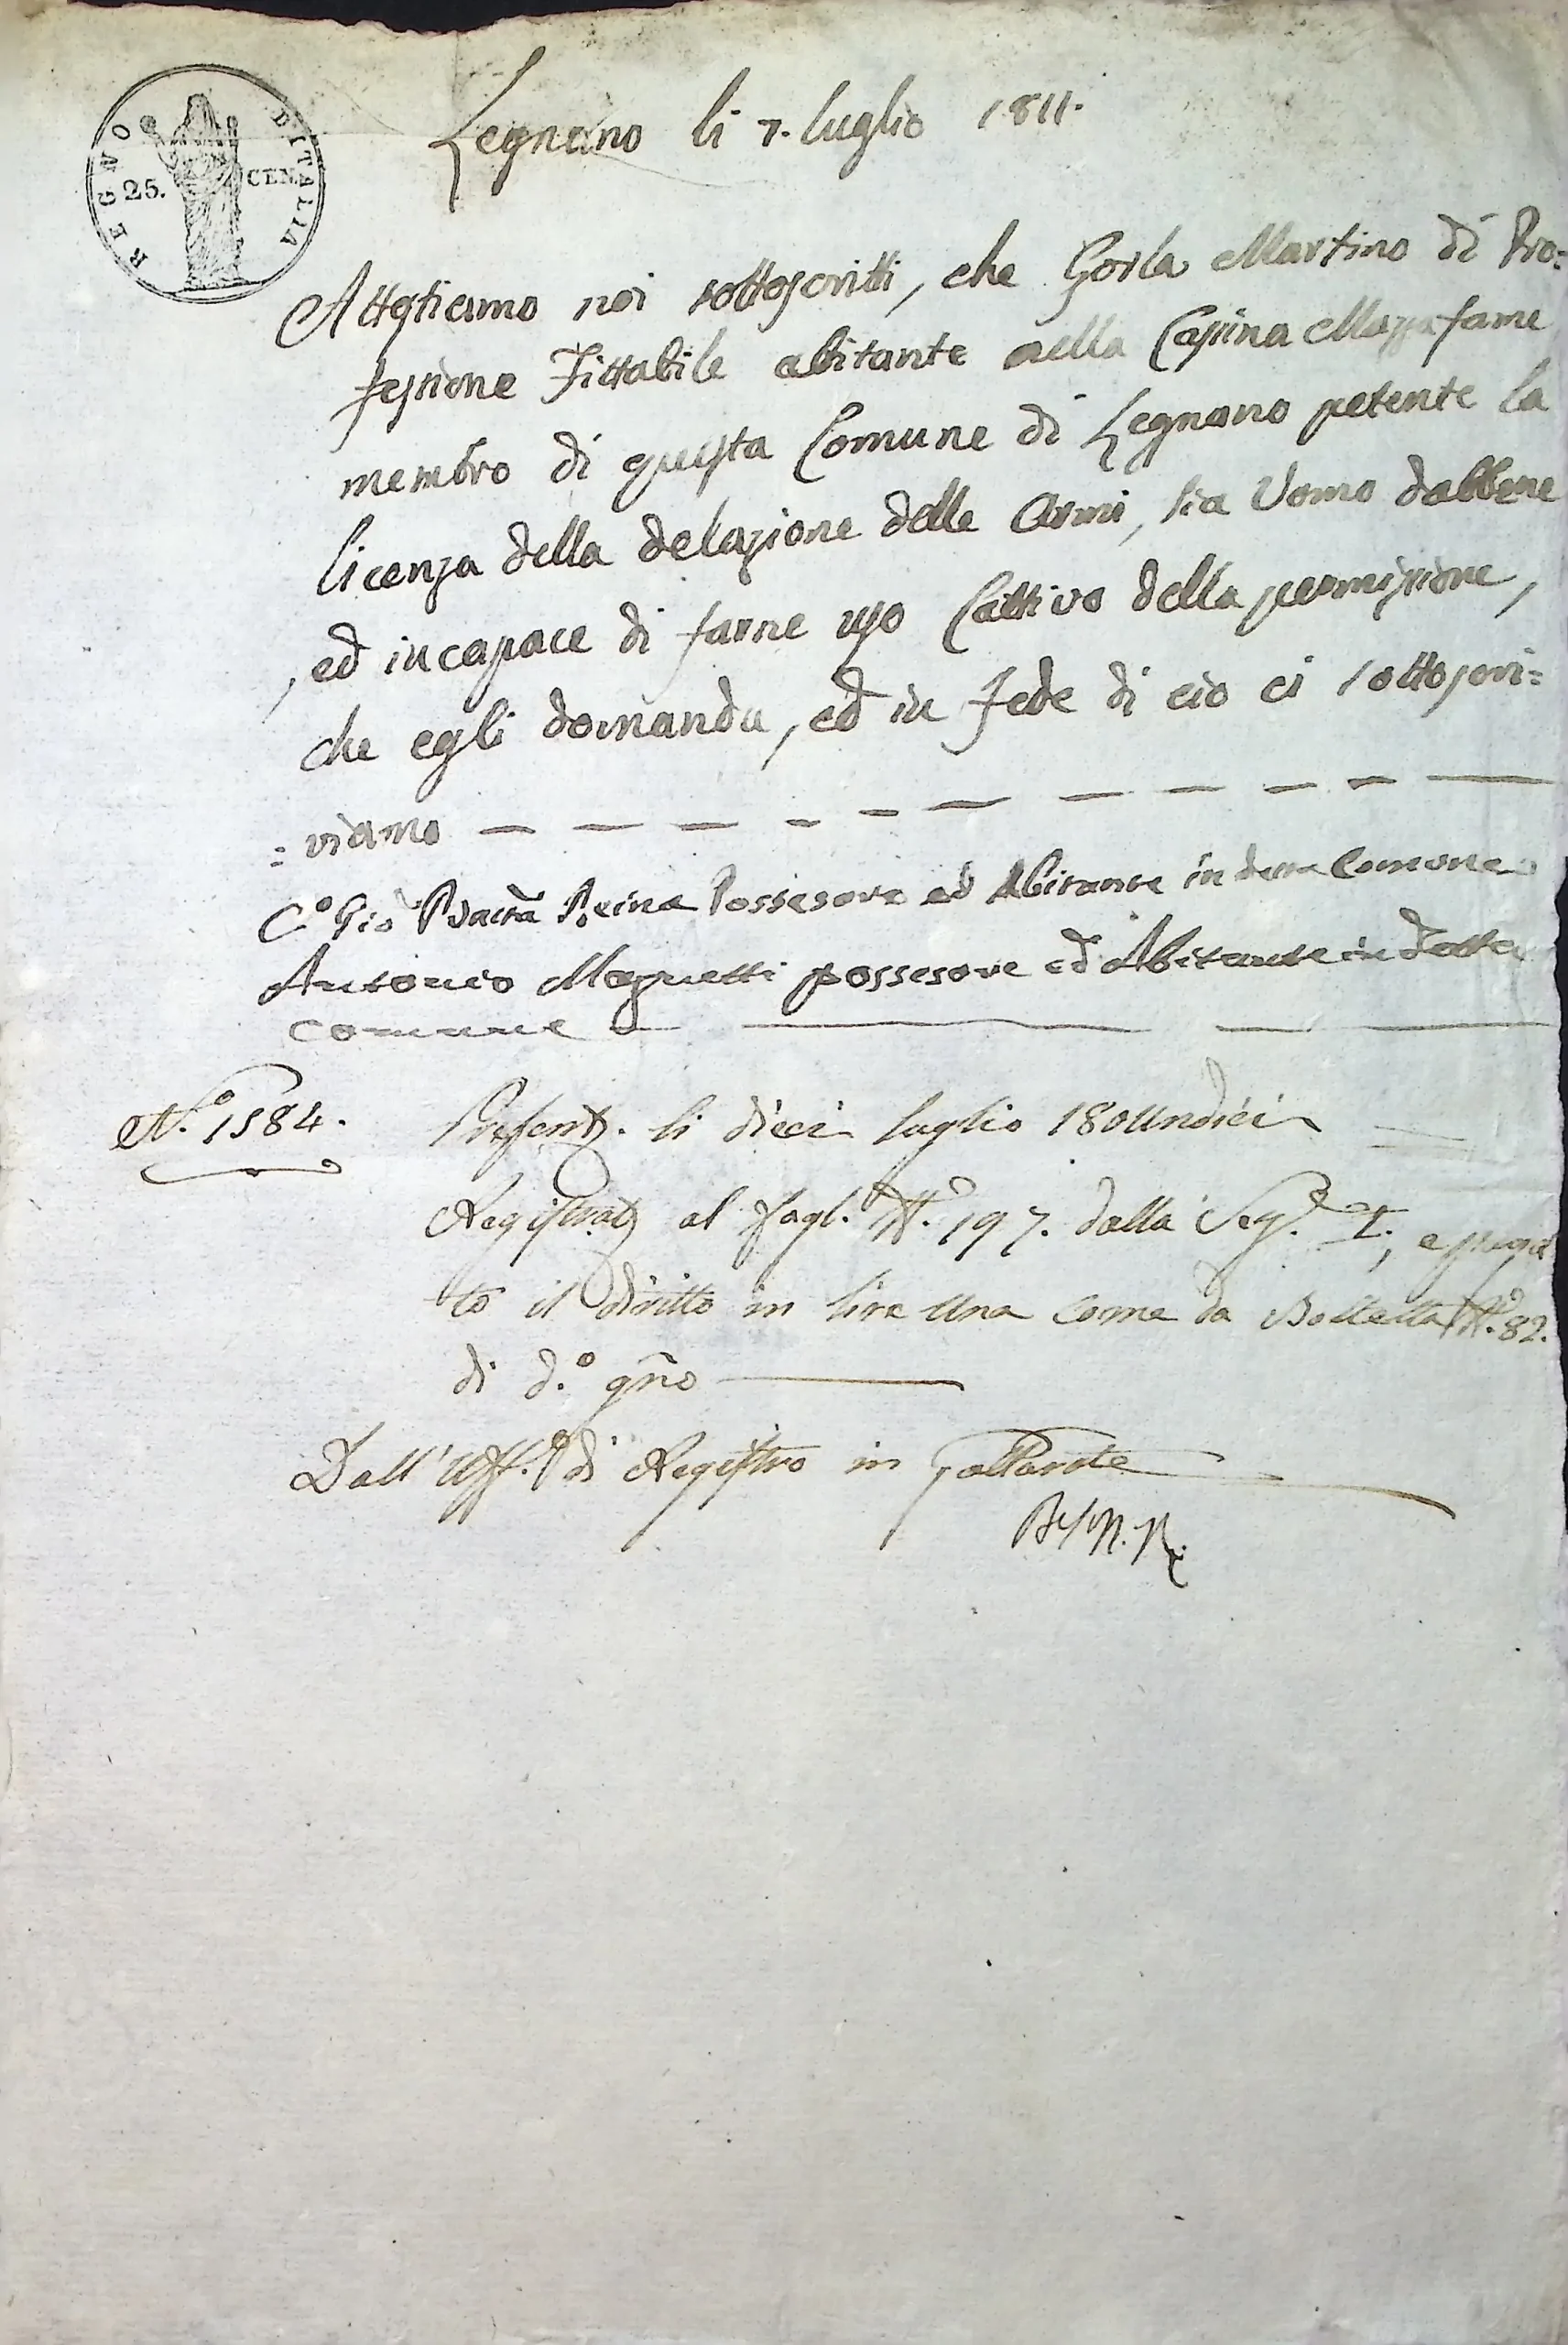 REGNO D'ITALIA
25. CEN.
Legnano li 7. luglio 1811.
Attestiamo noi sottoscritti, che Gorla Martino di Pro=
fessione Fittabile abitante nella Cassina Mazzafame
membro di questa Comune di Legnano petente la
licenza della delazione delle Armi, sia Uomo dabbene
, ed incapace di farne uso Cattivo della permissione,
che egli domanda, ed in Fede di ciò ci sottoscri=
=viamo
C.o Gio Batta Reina Possesore ed Abitante in detta Comune
Antonio Magnetti possesore ed Abitante in detta
Comune
N.o 1584. Present. li dieci luglio 180Undici
Registrat al fogl. N.o 197. della Seg. I., e paga
to il diritto in lire Una come da Bolletta N.o 82.
di d.o gño
Dall'Uff. di Registro in Gallarate